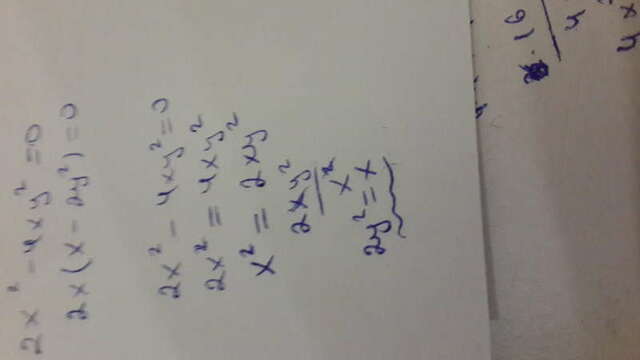 2x² - 4xy² = 0
2x(x - 2y²) = 0
2x² - 4xy² = 0
2x² = 4xy²
x² = 2xy²
2xy²
x
2y² = x
· 16
4
4x